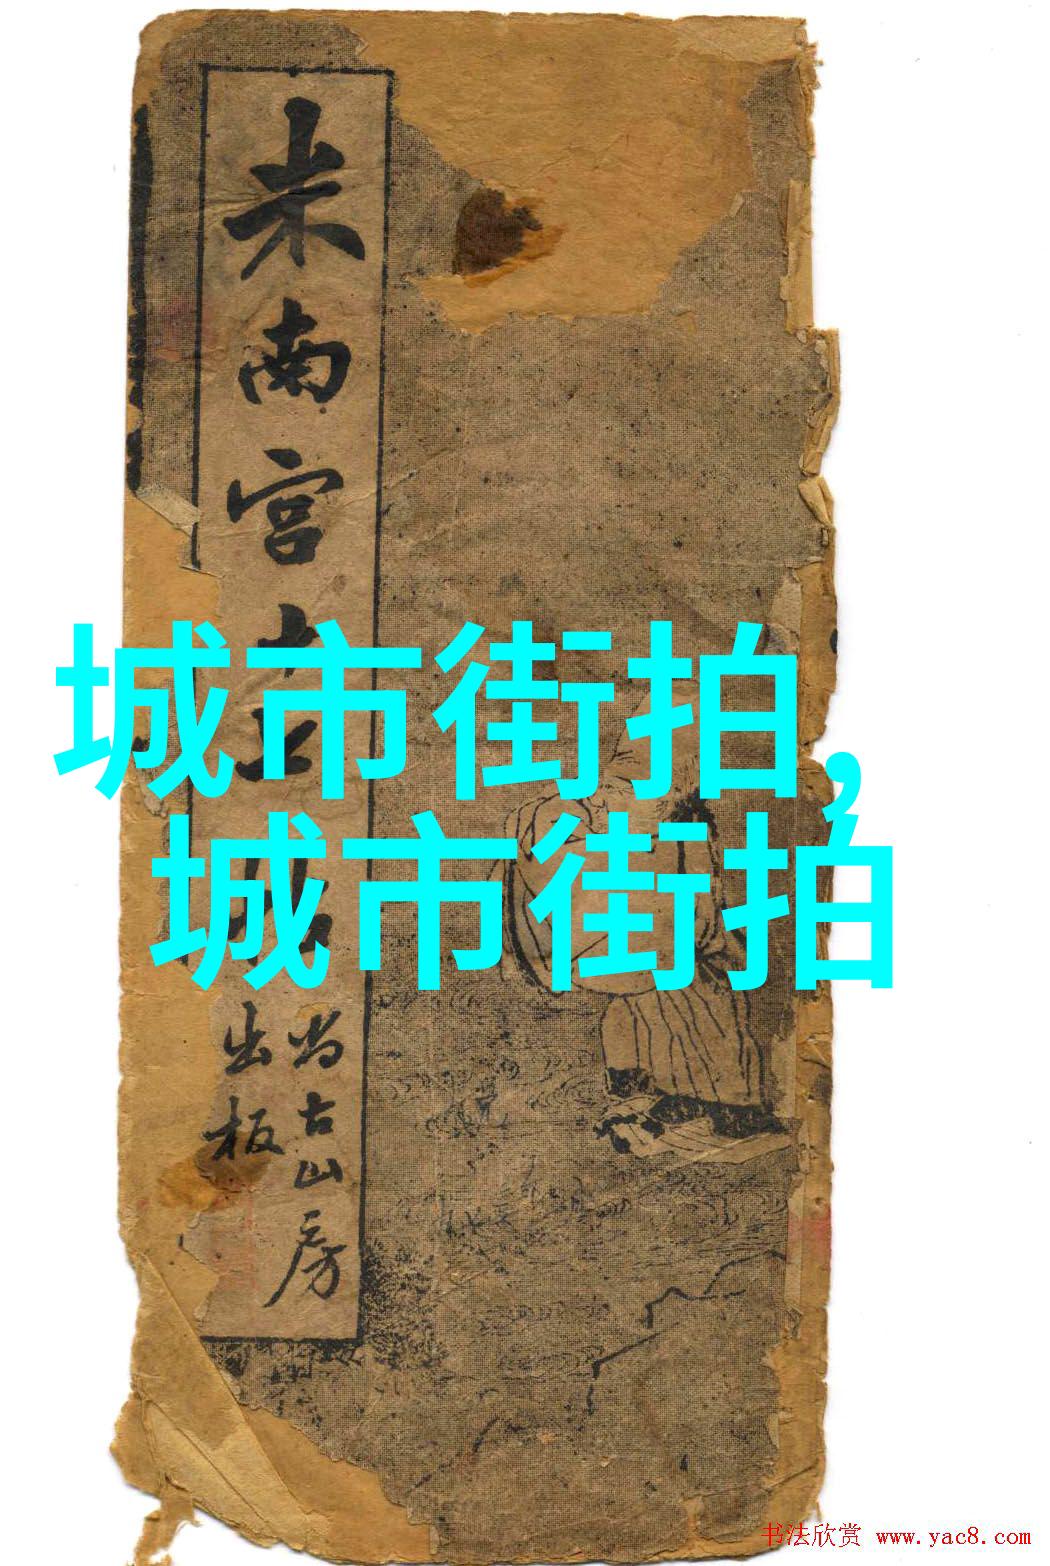 米南宫十
尚古山房
出板
城市街拍,
城市街拍
书法欣赏 www.yac8.com